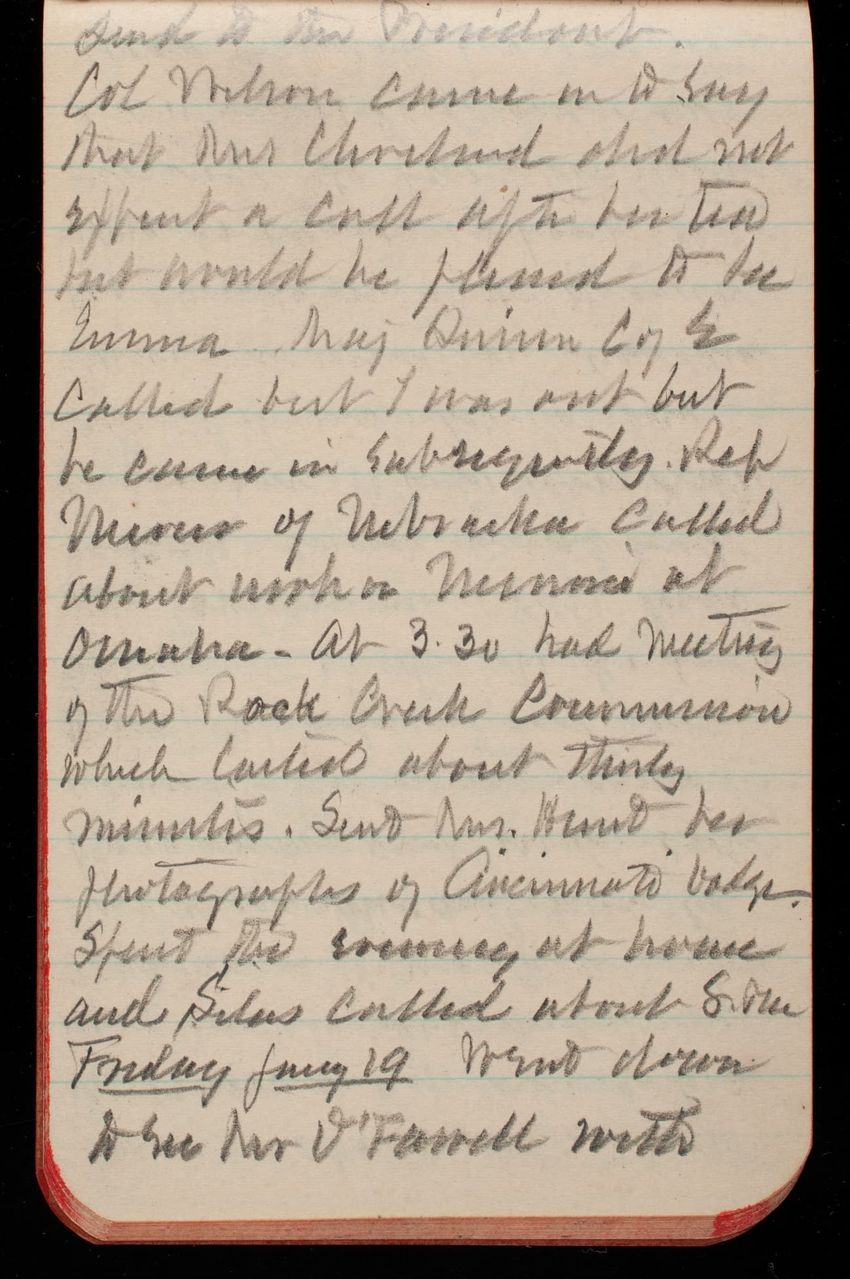 send to the President.
Col Wilson came in to say
that Mrs Cleveland did not
expect a call after her tea
but would be pleased to see
Emma. Maj Quinn C of E
called but I was out but
he came in subsequently. Rep
Mercer of Nebraska called
about work on at
Omaha - At 3.30 had meeting
of the Rock Creek Commission
which lasted about thirty
minutes. Sent Mrs. her
photographs of Cincinnati badge.
Spent the evening at home
and Silas called about
Friday Jany 19 Went down
to see Mr O'Farrell with